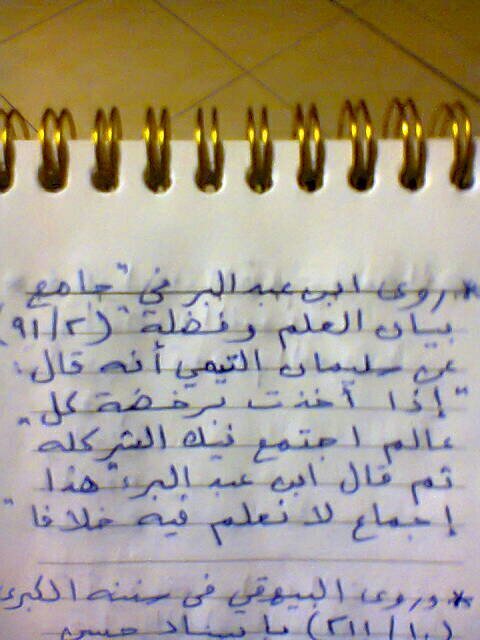 * روى ابن عبد البر في "جامع
بيان العلم وفضلة" (٩١/٢)
عن سليمان التيمي أنه قال:
"إذا أخذت برخصة كل
عالم اجتمع فيك الشر كله"
ثم قال ابن عبد البر: "هذا
إجماع لا نعلم فيه خلافا"
* وروى البيهقي في سننه الكبرى
(٢١١/١٠) بإسناد حسن